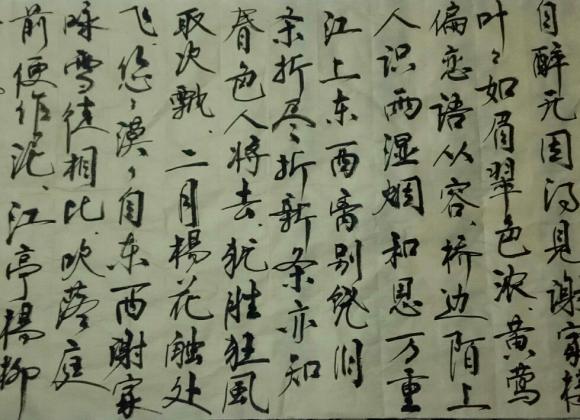 自醉无因得见谢家楼
叶々如眉翠色浓黄莺
偏恋语从容桥边陌上
人识雨湿烟和思万重
江上东西离别饶旧
条折尽折新条亦知
春色人将去犹胜狂风
取次飘二月杨花触处
飞悠々漠々自东西谢家
咏雪徒相比吹落庭
前便作泥江亭杨柳